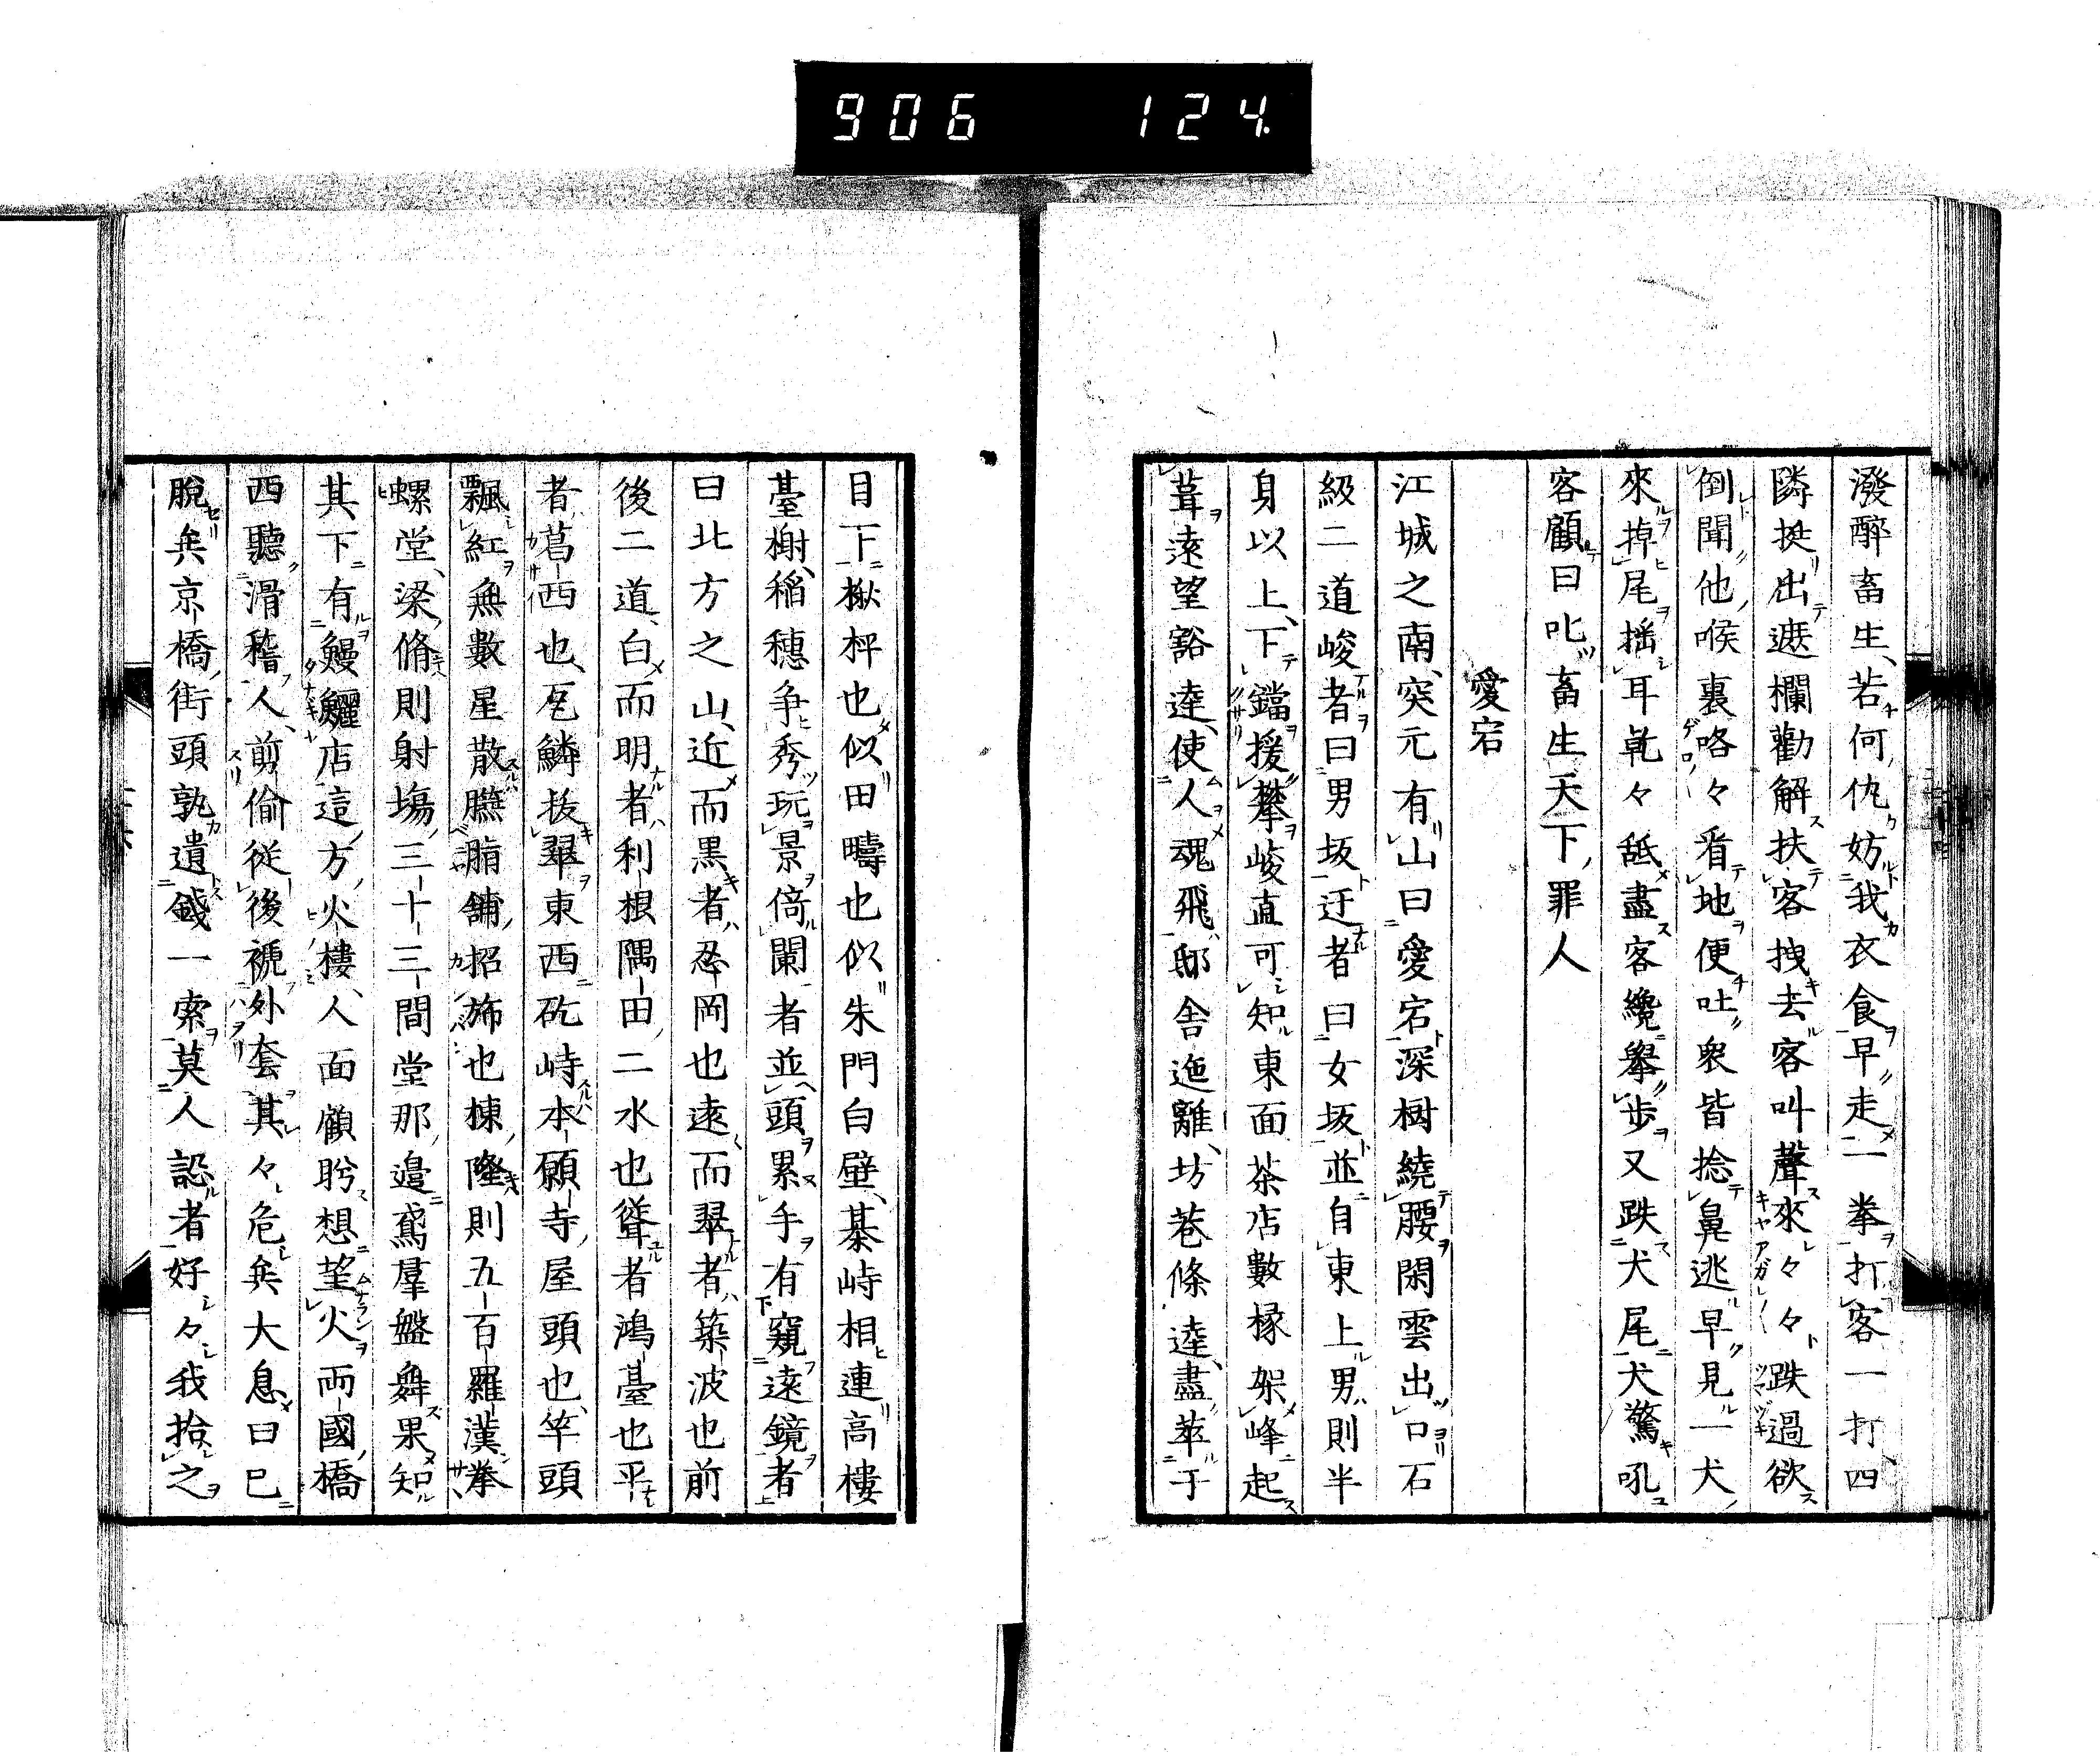 906 124.
潑醉畜生、若何仇妨我衣食早走一拳打客一打四
隣挺出遮欄勸解扶客拽去客叫聲來々々跌過欲
倒聞他喉裏咯々看地便吐衆皆捻鼻逃早見一犬
來掉尾搖耳乾々舐盡客纔擧步又跌犬尾犬驚吼
客顧曰叱畜生天下罪人
愛宕
江城之南、突兀有山曰愛宕深樹繞腰閑雲出口石
級二道峻者曰男坂迂者曰女坂並自東上男則半
身以上、下鐺援攀峻直可知東面茶店數椽架峰起
葺遠望豁達、使人魂飛邸舍迤邐、坊巷條達、盡萃于
目下楸枰也似田疇也似朱門白壁、棊峙相連高樓
臺榭、稲穗爭秀玩景倚闌者並頭累手有窺遠鏡者
曰北方之山、近而黑者、忍岡也遠而翠者、築波也前
後二道、白而明者、利根隅田、二水也聳者鴻臺也平
者葛西也、瓦鱗抜翠東西矻峙本願寺屋頭也、竿頭
飄紅無數星散臙脂舖招旆也棟隆則五百羅漢拳
螺堂、梁脩則射塲三十三間堂那邉鳶羣盤舞果知
其下有鰻鱺店這方火樓、人面顧盻想望火兩國橋
西聽滑稽人、剪偷從後褫外套其々危矣大息曰已
脫矣京橋街頭孰遺錢一索莫人認者好々我拾之